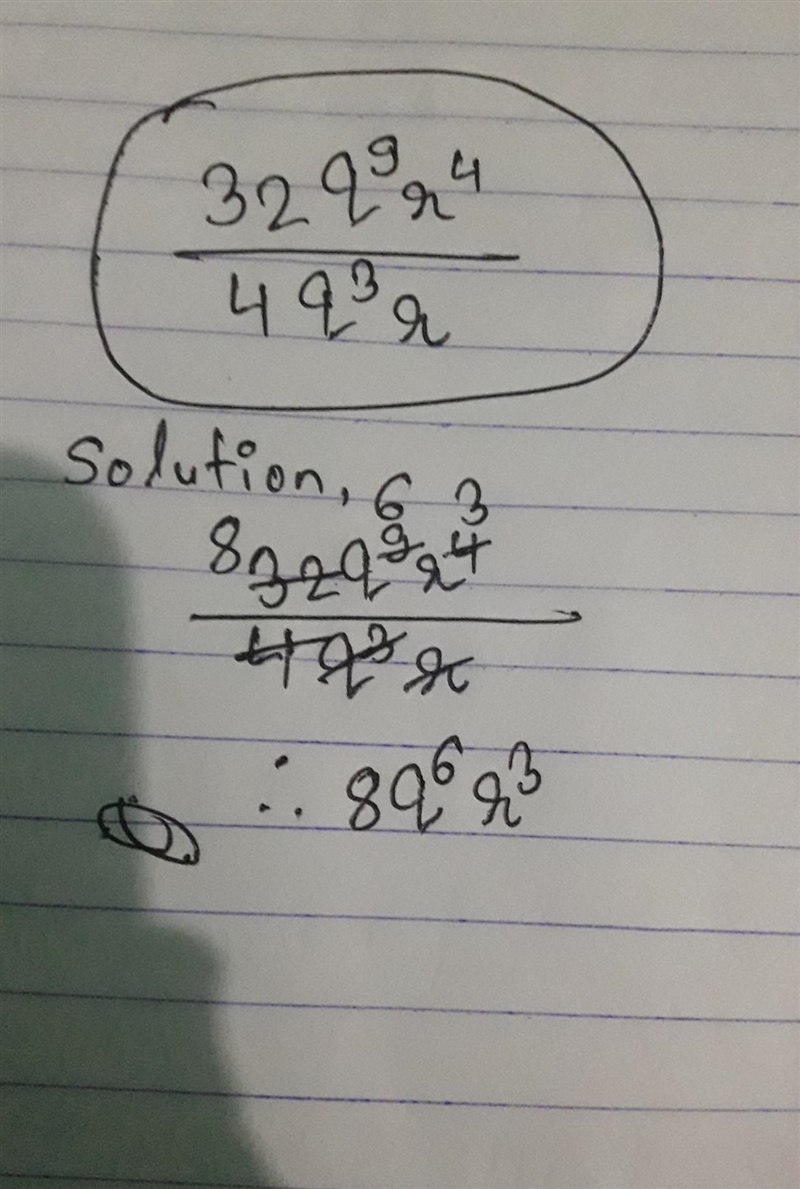 32q⁹r⁴
4q³r
Solution,
6 3
8 32q⁹r⁴
4q³r
∴ 8q⁶r³